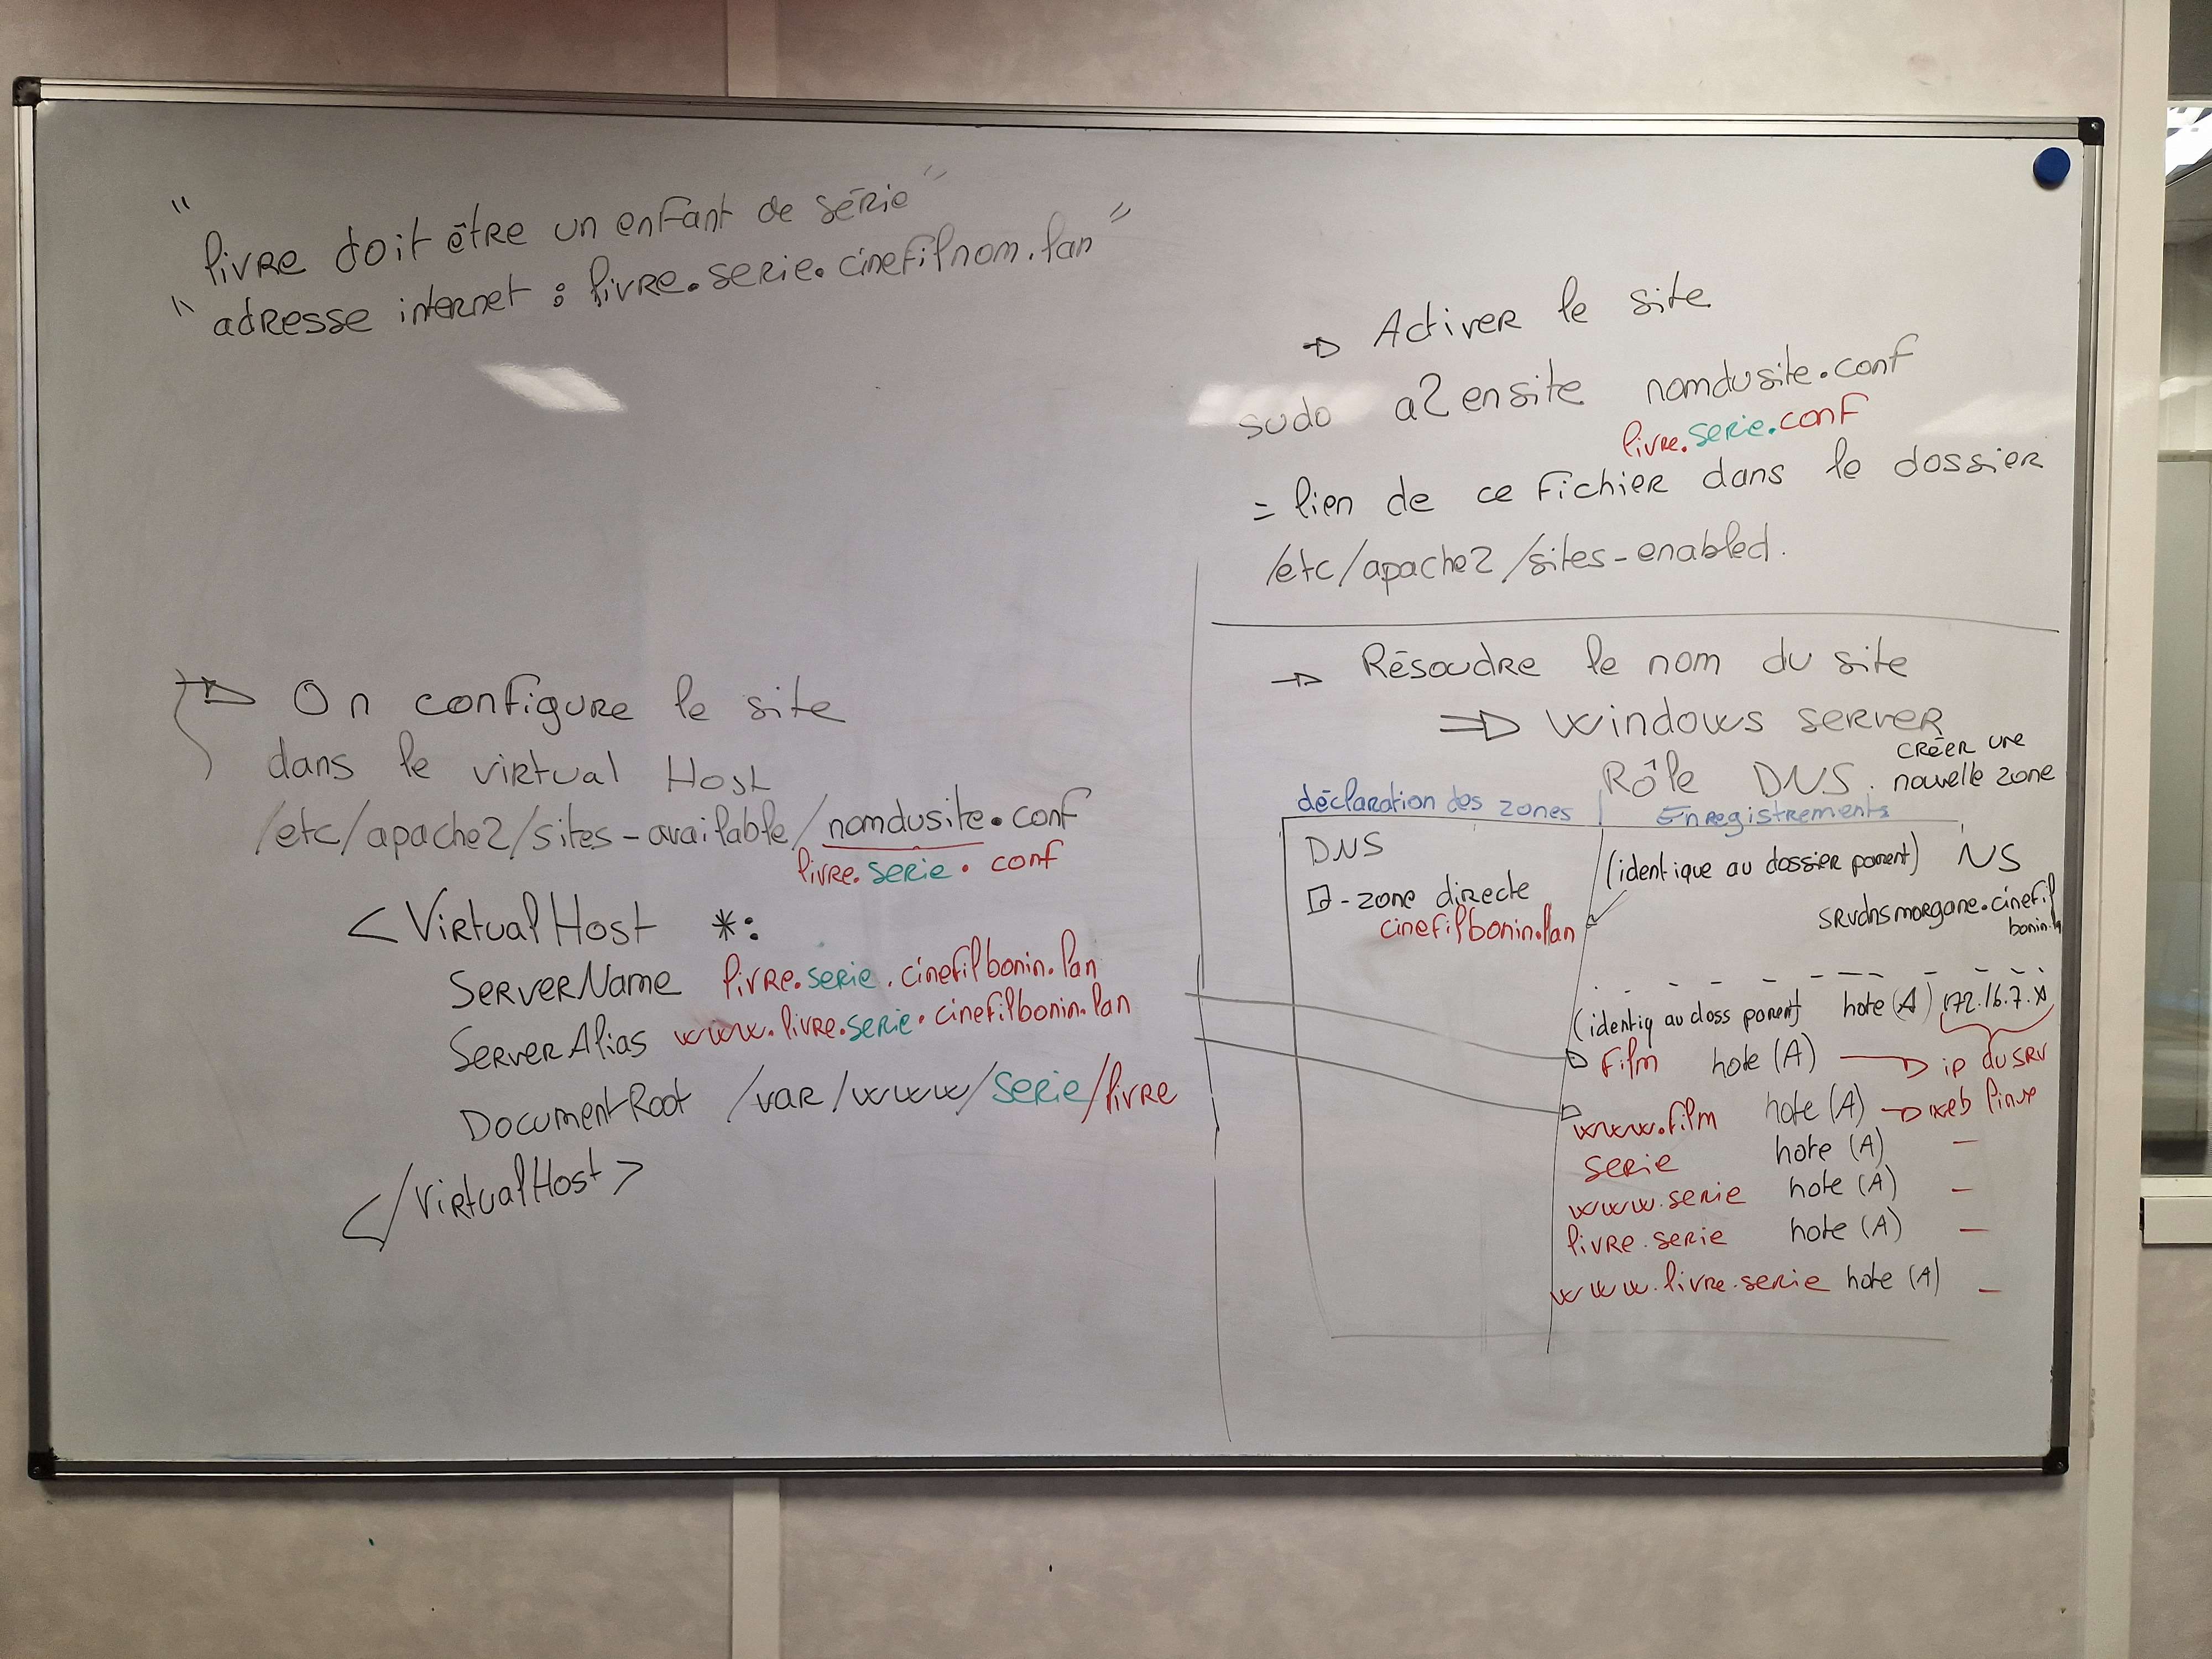 "livre doit être un enfant de série"
"adresse internet : livre.serie.cinefilnom.lan"
→ On configure le site
dans le virtual Host
/etc/apache2/sites-available/nomdusite.conf
livre.serie.conf
<VirtualHost *:
ServerName livre.serie.cinefilbonin.lan
ServerAlias www.livre.serie.cinefilbonin.lan
DocumentRoot /var/www/serie/livre
</VirtualHost>
→ Activer le site
sudo a2ensite nomdusite.conf
livre.serie.conf
= lien de ce fichier dans le dossier
/etc/apache2/sites-enabled.
→ Résoudre le nom du site
⇒ windows server
Rôle DNS. créer une
nouvelle zone
déclaration des zones | Enregistrements
DNS
- zone directe
cinefilbonin.lan
(identique au dossier parent) NS
srvdnsmorgane.cinefil
bonin.l
(identiq au doss parent) hote (A) 172.16.7.
Film hote (A) → ip du srv
www.film hote (A) → web linux
serie hote (A) -
www.serie hote (A) -
livre.serie hote (A) -
www.livre.serie hote (A) -